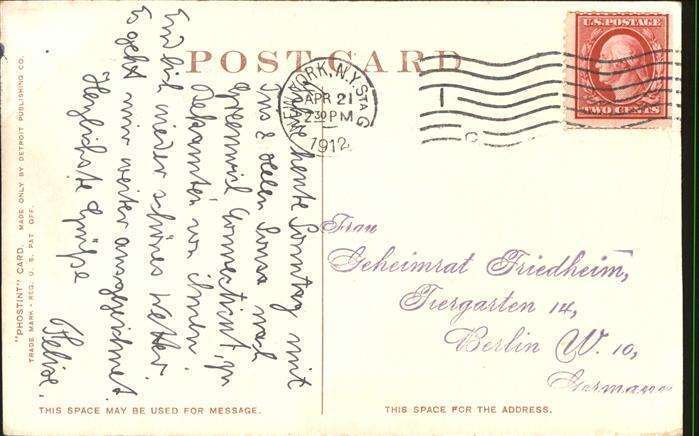 POST CARD
U.S. POSTAGE
TWO CENTS
NEW YORK, N.Y. STA. G
APR 21
2 30 PM
1912
"PHOSTINT" CARD. MADE ONLY BY DETROIT PUBLISHING CO.
TRADE MARK - REG. U. S. PAT OFF.
heute Sonntag mit
Ins & Helen nach
Greenwich Connecticut, zu
Bekannten von ihnen.
Endlich wieder schönes Wetter.
Es geht mir weiter ausgezeichnet.
Herzlichste Grüße
Frau
Geheimrat Friedheim,
Tiergarten 14,
Berlin W. 10,
Germany
THIS SPACE MAY BE USED FOR MESSAGE.
THIS SPACE FOR THE ADDRESS.